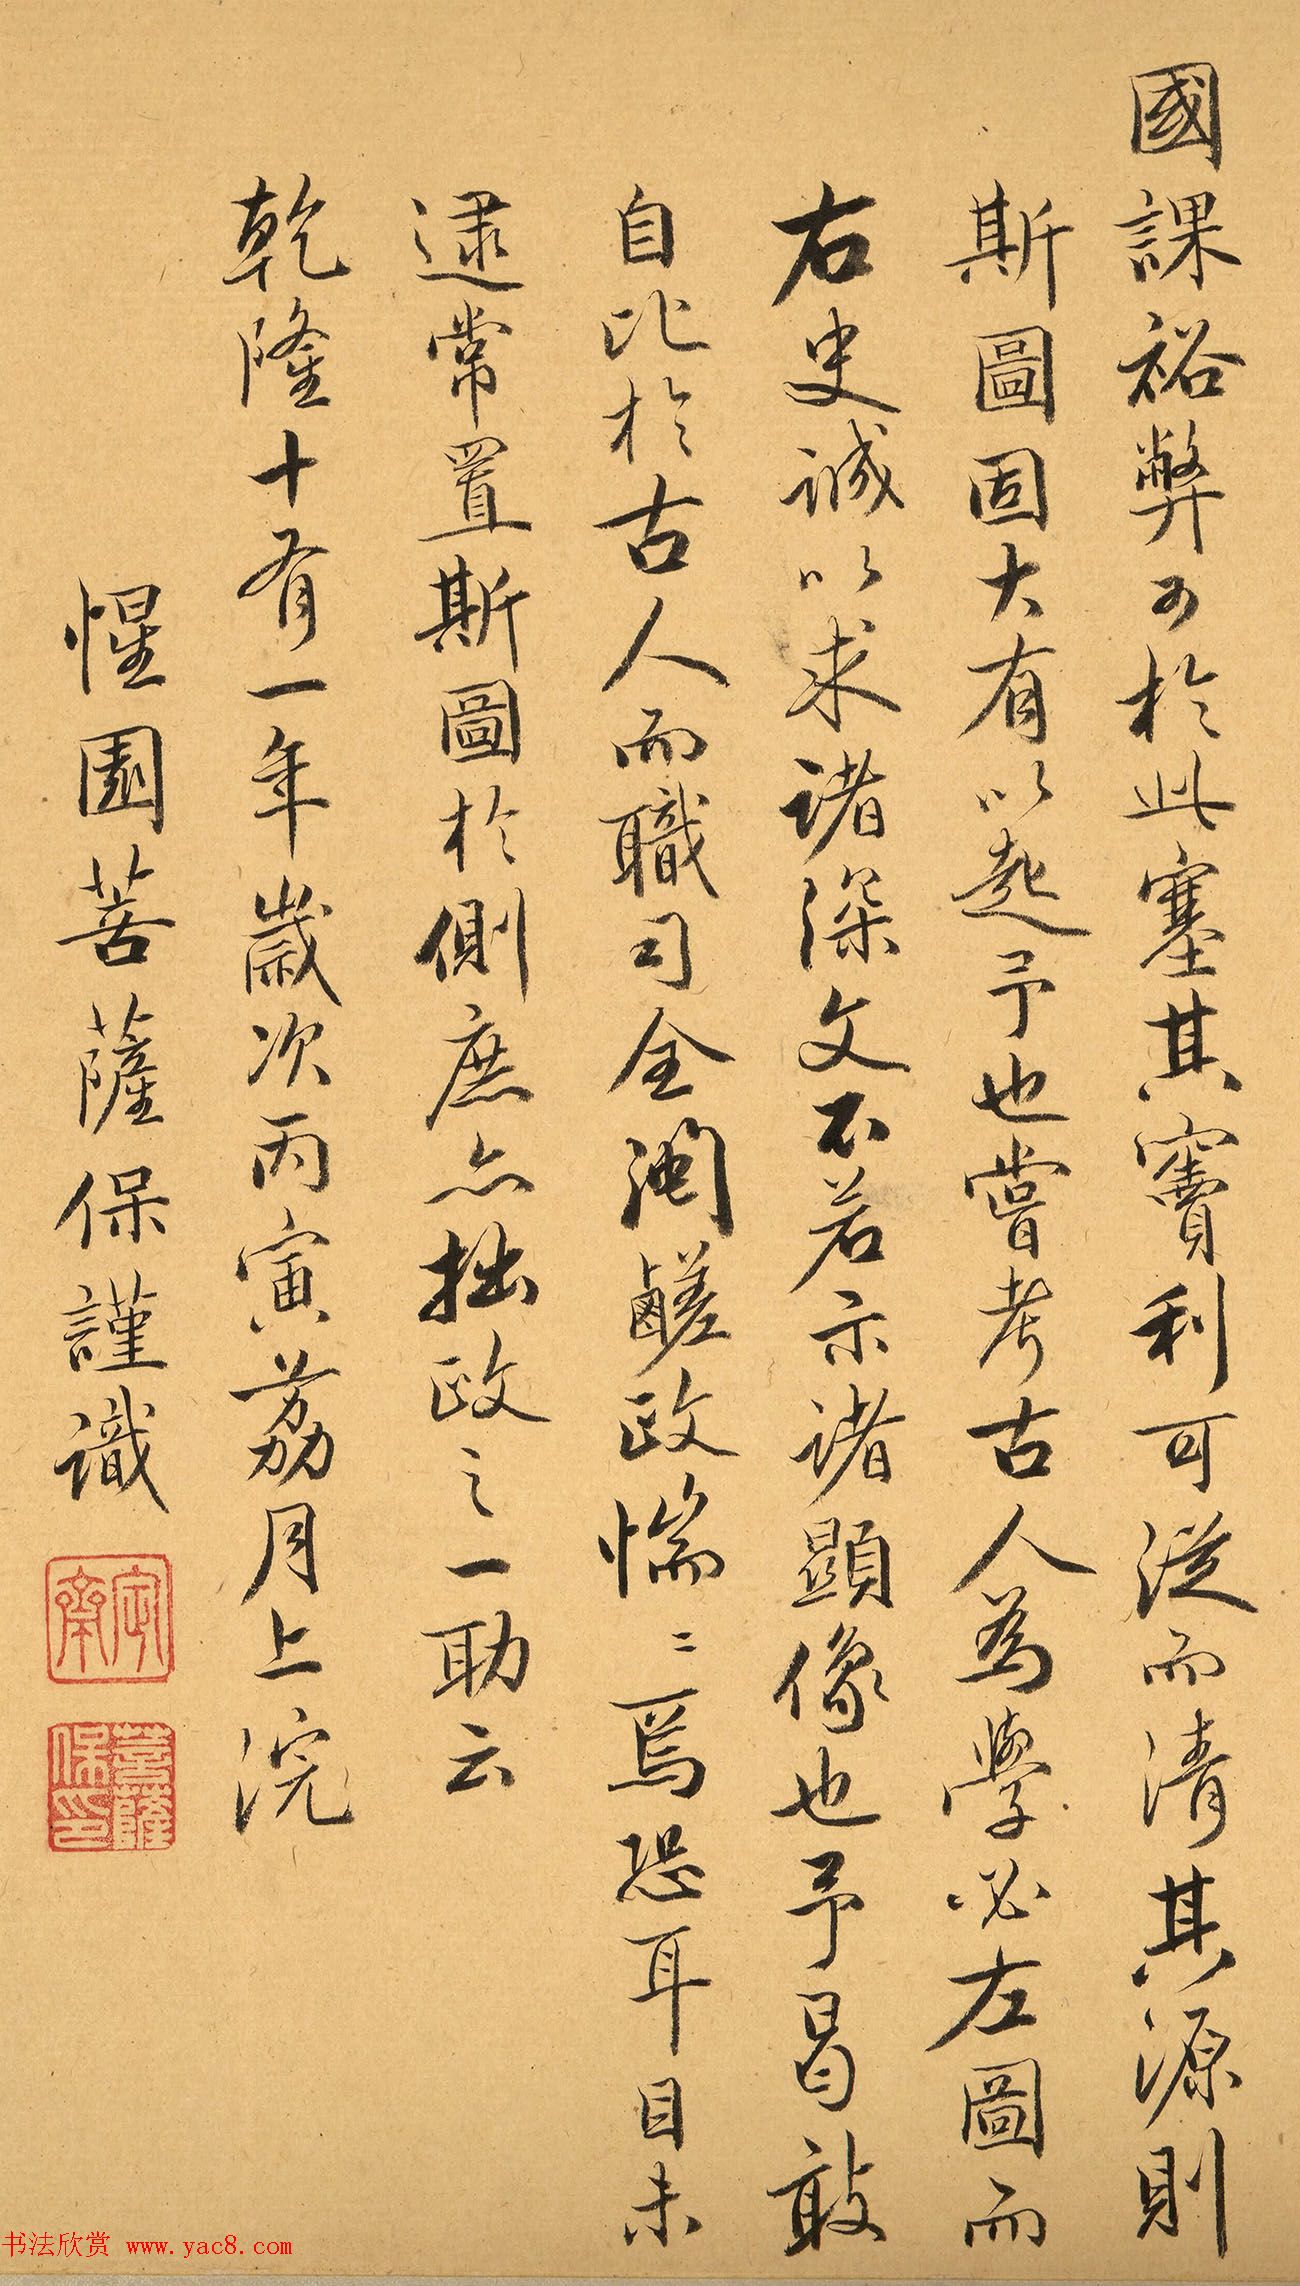 國課裕弊可於此塞其竇利可從而清其源則
斯圖固大有以起予也嘗考古人為學必左圖而
右史誠以求諸深文不若示諸顯像也予曷敢
自比於古人而職司全閩鹺政惴〻焉恐耳目未
逮常置斯圖於側庶亦拙政之一助云
乾隆十有一年歲次丙寅荔月上浣
惺園菩薩保謹識
定齋
菩薩保印
书法欣赏 www.yac8.com